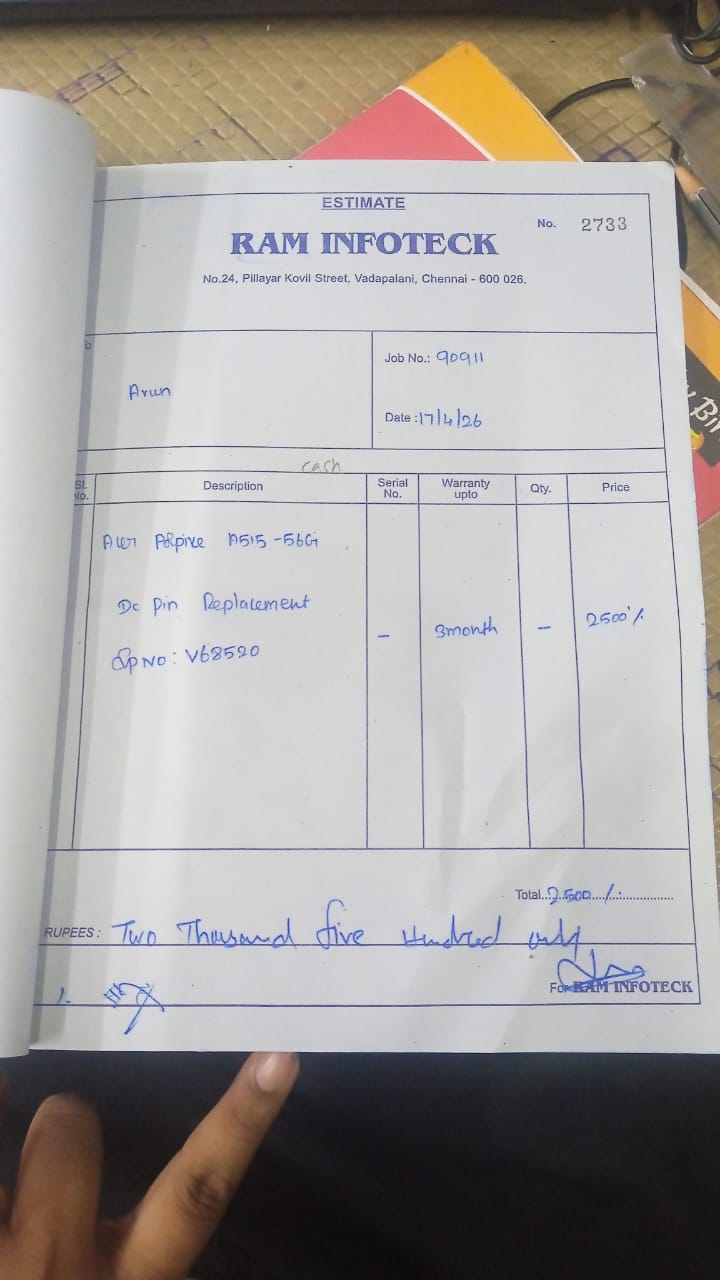 ESTIMATE
No. 2733
RAM INFOTECK
No.24, Pillayar Kovil Street, Vadapalani, Chennai - 600 026.
Arun
Job No.: 90911
Date : 17/4/26
cash
Sl. No. Description Serial No. Warranty upto Qty. Price
Acer ASpire A515-56G
Dc Pin Replacement
- 3month - 2500/.
Sp No: V68520
Total..2500../.
RUPEES : Two Thousand five Hundred only
For RAM INFOTECK